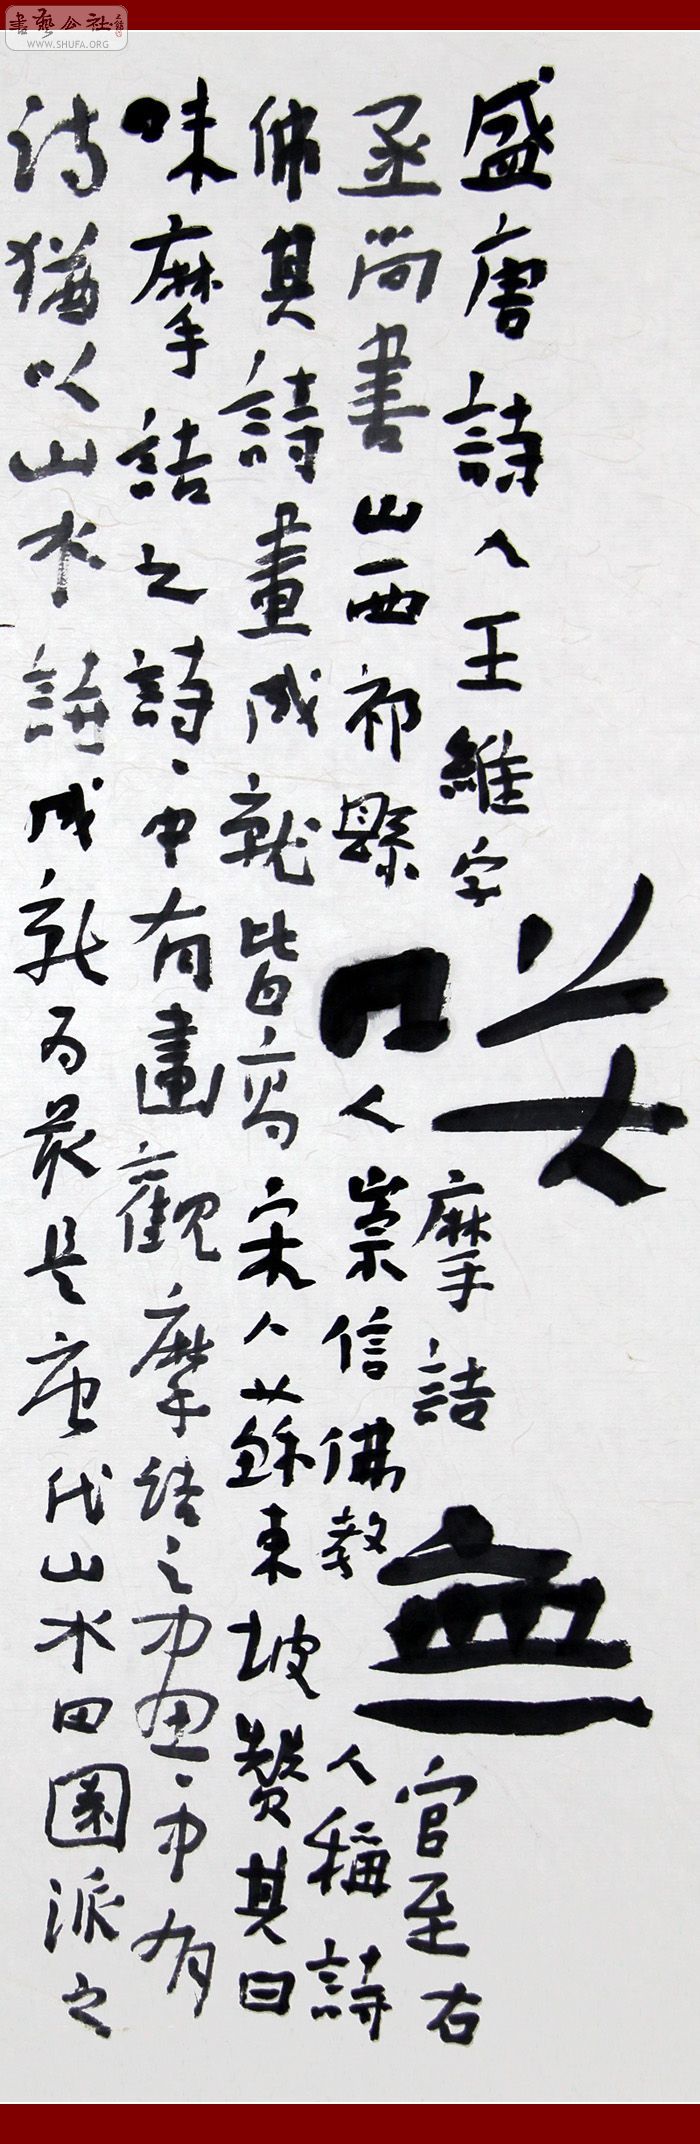 書藝公社
WWW.SHUFA.ORG
盛唐詩人王維字摩詰官至右
丞尚書山西祁縣口人崇信佛教人稱詩
佛其詩畫成就皆高宋人蘇東坡贊其曰
味摩詰之詩、中有畫觀摩詰之畫、中有
詩猶以山水詩成就为最是唐代山水田園派之